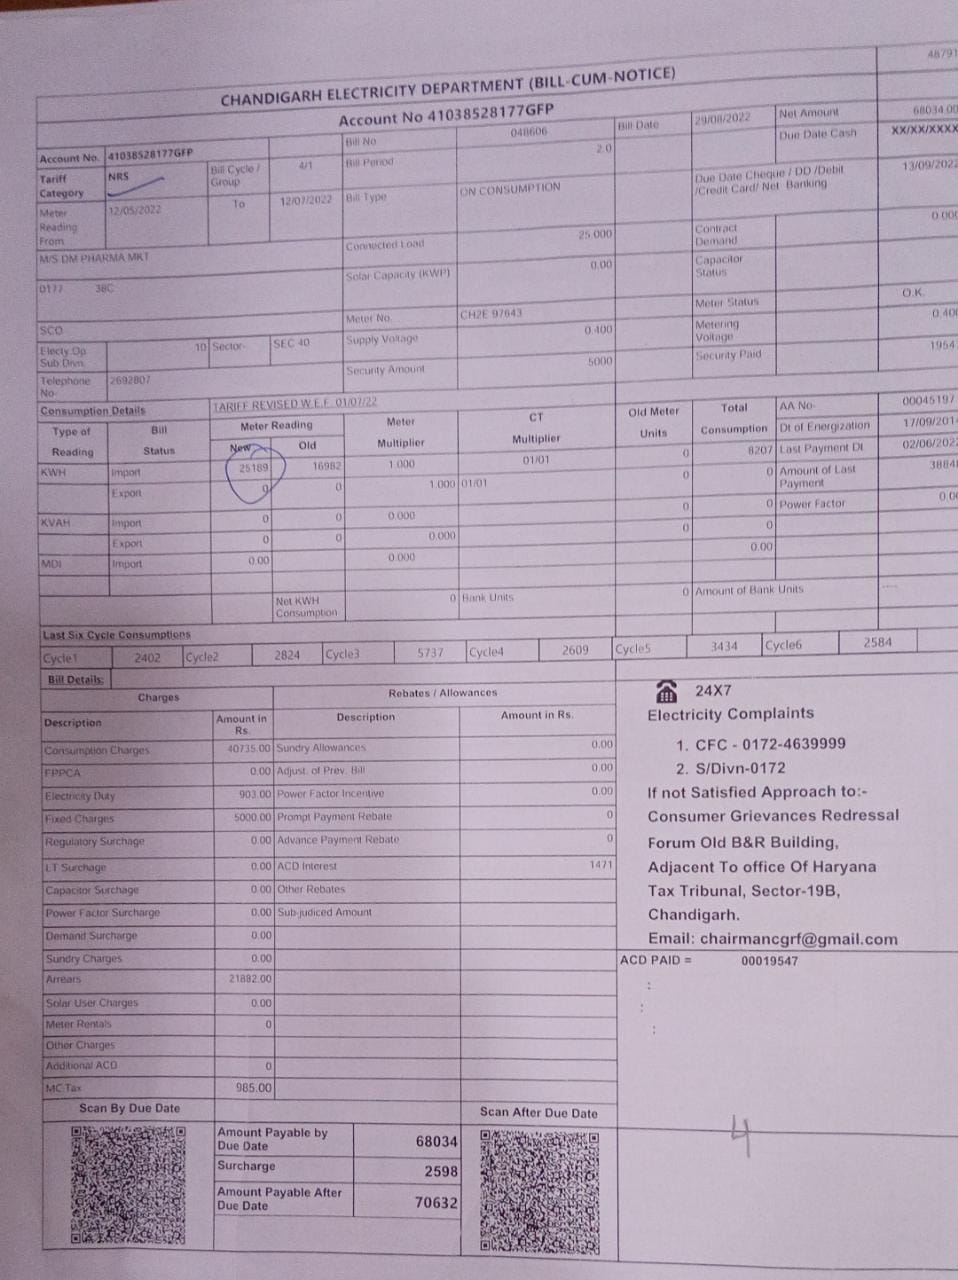 48791
CHANDIGARH ELECTRICITY DEPARTMENT (BILL-CUM-NOTICE)
Account No 41038528177GFP
Account No. 41038528177GFP Bill No 048606 Bill Date 29/08/2022 Net Amount 68034.00
Due Date Cash XX/XX/XXXX
Tariff Category NRS Bill Cycle / Group 4/1 Bill Period 2.0
Due Date Cheque / DD /Debit /Credit Card/ Net Banking 13/09/2022
Meter Reading From 12/05/2022 To 12/07/2022 Bill Type ON CONSUMPTION
M/S DM PHARMA MKT Connected Load 25.000 Contract Demand 0.000
0177 38C Solar Capacity (KWP) 0.00 Capacitor Status
SCO Meter No. CH2E 97643 Meter Status O.K.
Electy.Op Sub Divn. 10 Sector- SEC 40 Supply Voltage 0.400 Metering Voltage 0.400
Telephone No 2692807 Security Amount 5000 Security Paid 1954
Consumption Details TARIFF REVISED W.E.F. 01/07/22
Type of Reading Bill Status Meter Reading New Old Meter Multiplier CT Multiplier Old Meter Units Total Consumption AA No 00045197
Dt of Energization 17/09/201
KWH Import 25189 16982 1.000 01/01 0 8207 Last Payment Dt 02/06/202
Export 0 0 1.000 01/01 0 0 Amount of Last Payment 3884
KVAH Import 0 0 0.000 0 0 Power Factor 0.0
Export 0 0 0.000 0 0
MDI Import 0.00 0.000 0.00
Net KWH Consumption 0 Bank Units 0 Amount of Bank Units
Last Six Cycle Consumptions
Cycle1 2402 Cycle2 2824 Cycle3 5737 Cycle4 2609 Cycle5 3434 Cycle6 2584
Bill Details:
Charges Rebates / Allowances
Description Amount in Rs. Description Amount in Rs.
Consumption Charges 40735.00 Sundry Allowances 0.00
FPPCA 0.00 Adjust. of Prev. Bill 0.00
Electricity Duty 903.00 Power Factor Incentive 0.00
Fixed Charges 5000.00 Prompt Payment Rebate 0
Regulatory Surchage 0.00 Advance Payment Rebate 0
LT Surchage 0.00 ACD Interest 1471
Capacitor Surchage 0.00 Other Rebates
Power Factor Surcharge 0.00 Sub-judiced Amount
Demand Surcharge 0.00
Sundry Charges 0.00
Arrears 21882.00
Solar User Charges 0.00
Meter Rentals 0
Other Charges
Additional ACD 0
MC Tax 985.00
24X7
Electricity Complaints
1. CFC - 0172-4639999
2. S/Divn-0172
If not Satisfied Approach to:-
Consumer Grievances Redressal
Forum Old B&R Building,
Adjacent To office Of Haryana
Tax Tribunal, Sector-19B,
Chandigarh.
Email: chairmancgrf@gmail.com
ACD PAID = 00019547
:
:
:
Scan By Due Date Scan After Due Date
Amount Payable by Due Date 68034
Surcharge 2598
Amount Payable After Due Date 70632
4